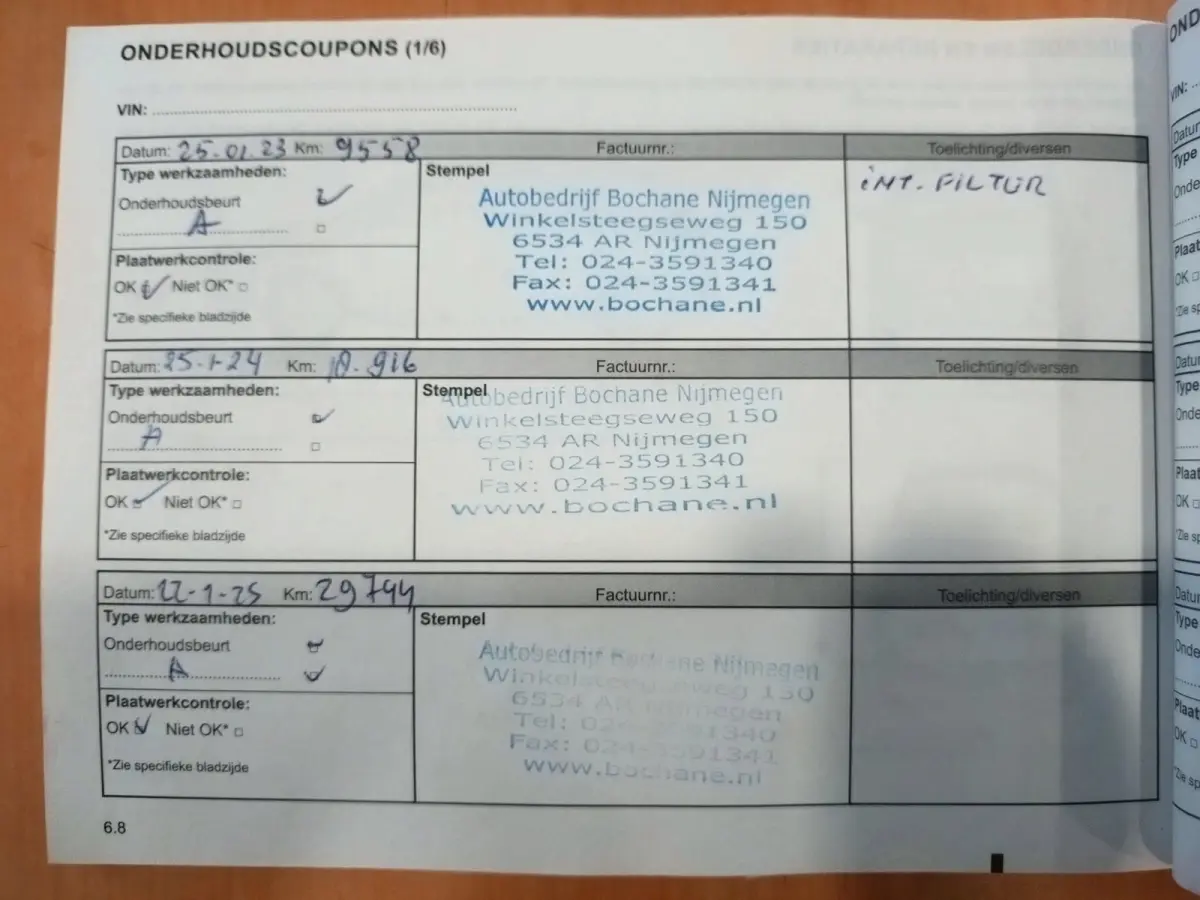 ONDERHOUDSCOUPONS (1/6)
VIN:
Datum: 25.01.23 Km: 9558 Factuurnr.: Toelichting/diversen
Type werkzaamheden: Stempel
iNT. FiLTUR
Onderhoudsbeurt
A
Autobedrijf Bochane Nijmegen
Winkelsteegseweg 150
6534 AR Nijmegen
Tel: 024-3591340
Fax: 024-3591341
www.bochane.nl
Plaatwerkcontrole:
OK Niet OK*
*Zie specifieke bladzijde
Datum: 25-1-24 Km: 18.916 Factuurnr.: Toelichting/diversen
Type werkzaamheden: Stempel
Onderhoudsbeurt
A
Autobedrijf Bochane Nijmegen
Winkelsteegseweg 150
6534 AR Nijmegen
Tel: 024-3591340
Fax: 024-3591341
www.bochane.nl
Plaatwerkcontrole:
OK Niet OK*
*Zie specifieke bladzijde
Datum: 22-1-25 Km: 29744 Factuurnr.: Toelichting/diversen
Type werkzaamheden: Stempel
Onderhoudsbeurt
A
Autobedrijf Bochane Nijmegen
Winkelsteegseweg 150
6534 AR Nijmegen
Tel: 024-3591340
Fax: 024-3591341
www.bochane.nl
Plaatwerkcontrole:
OK Niet OK*
*Zie specifieke bladzijde
6.8